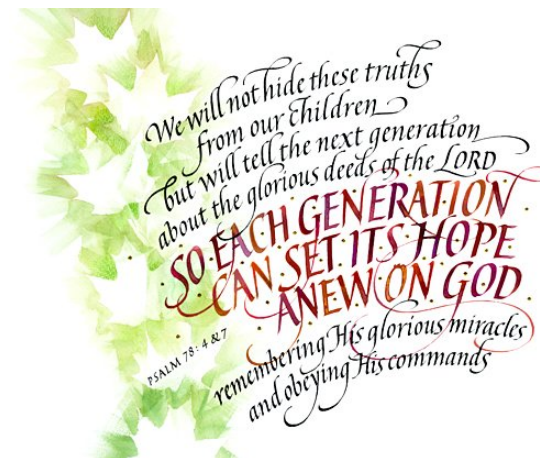 We will not hide these truths
from our children
but will tell the next generation
about the glorious deeds of the LORD
SO EACH GENERATION
CAN SET ITS HOPE
ANEW ON GOD
remembering His glorious miracles
and obeying His commands
PSALM 78: 4 &7